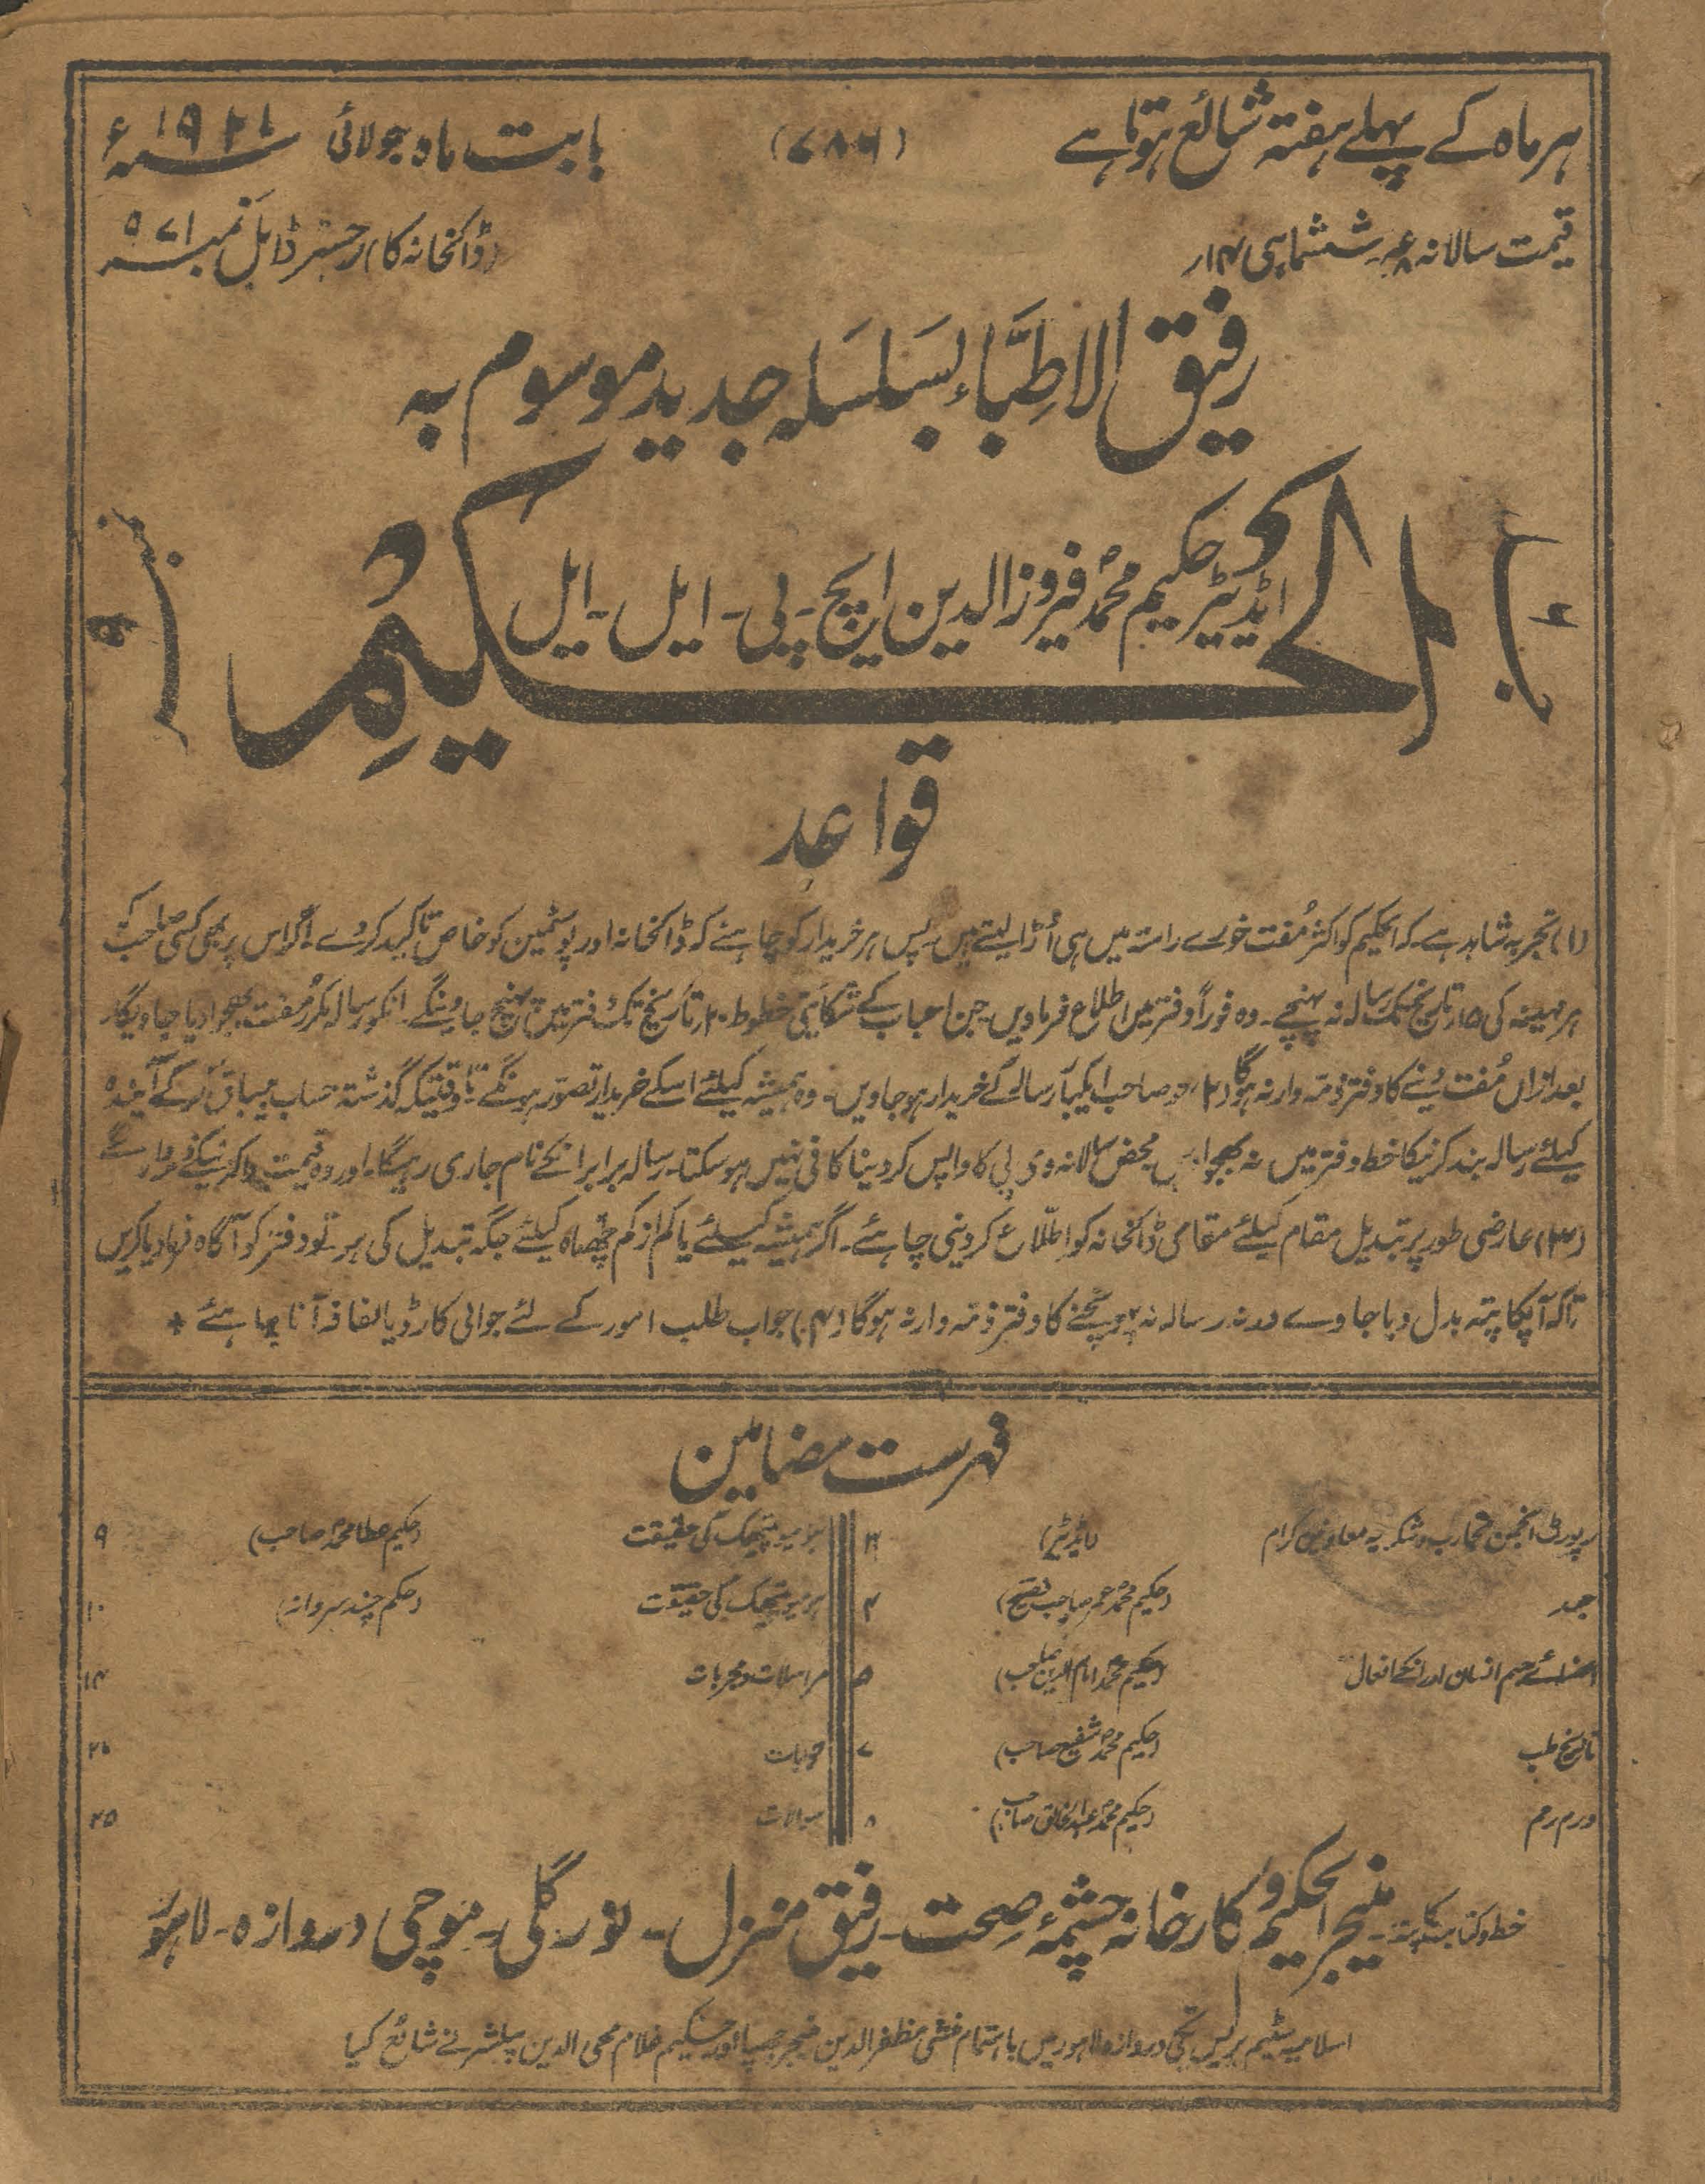 ہر ماہ کے پہلے ہفتہ شائع ہوتا ہے (۷۸۶) بابت ماہ جولائی ۱۹۲۱ء
قیمت سالانہ ششماہی ۱۴ار (ڈاکخانہ کا) رجسٹرڈ ایل نمبر ۹۷۱
رفیق الاطبّاء بسلسلہ جدید موسوم بہ
الحکیم
ایڈیٹر حکیم محمد فیروز الدین ایچ - پی - ایل - ایل
قواعد
(۱) تجربہ شاہد ہے کہ الحکیم کو اکثر مُفت خورے راستہ میں ہی اُڑا لیتے ہیں۔ پس ہر خریدار کو چاہئے کہ ڈاکخانہ اور پوسٹمین کو خاص تاکید کردے۔ اگر اس پر بھی کسی صاحب کو
ہر مہینہ کی ۱۵ تاریخ تک رسالہ نہ پہنچے۔ وہ فوراً دفتر میں اطلاع فرمادیں۔ جن احباب کے شکایتی خطوط ۲۰ تاریخ تک دفتر میں پہنچ جاویں گے۔ انکو رسالہ مکرر مُفت بھجوا دیا جاویگا۔
بعد ازاں مُفت دینے کا دفتر ذمہ وار نہ ہوگا (۲) جو صاحب ایکبار رسالہ کے خریدار ہوجاویں۔ وہ ہمیشہ کیلئے اسکے خریدار تصوّر ہونگے تاوقتیکہ گذشتہ حساب بیباق کرکے آیندہ
کیلئے رسالہ بند کرنیکا خط دفتر میں نہ بھجوا محض سالانہ وی پی کا واپس کردینا کافی نہیں ہوسکتا۔ رسالہ برابر انکے نام جاری رہیگا۔ اور وہ قیمت ادا کرنیکے
(۳) عارضی طور پر تبدیل مقام کیلئے مقامی ڈاکخانہ کو اطلّاع کردینی چاہئے۔ اگر ہمیشہ کیلئے یا کم از کم چھ ماہ کیلئے جگہ تبدیل کی ہو۔ تو دفتر کو آگاہ فرما دیا کریں
تاکہ آپکا پتہ بدل دیا جاوے ورنہ رسالہ نہ پہونچنے کا دفتر ذمہ وار نہ ہوگا (۴) جواب طلب امور کے لئے جوابی کارڈ یا لفافہ آنا چاہئے *
فہرست مضامین
رپورٹ انجمن تجارب و شکریہ معاونین کرام (ایڈیٹر) ۲
جدر (حکیم محمد عمر صاحب فصیح) ۴
اعضائے جسم انسان اور انکے افعال (حکیم محمد امام الدین صاحب) ۵
تاریخ طب (حکیم محمد شفیع صاحب) ۷
ورم رحم (حکیم محمد عبدالخالق صاحب) ۸
ہومیوپیتھک کی حقیقت (حکیم عطا محمد صاحب) ۹
ہومیوپیتھک کی حقیقت (حکم چند ) ۱۰
مراسلات و مجربات ۱۴
جوابات ۲۰
سوالات ۲۵
خط و کتابت کا پتہ۔ منیجر الحکیم و کارخانہ چشمۂ صحت۔ رفیق منزل۔ نور گلی۔ موچی دروازہ۔ لاہور
اسلامیہ سٹیم پریس دروازہ لاہور میں باہتمام منشی مظفر الدین منیجر چھپا اور حکیم غلام محی الدین پبلشر نے شائع کیا